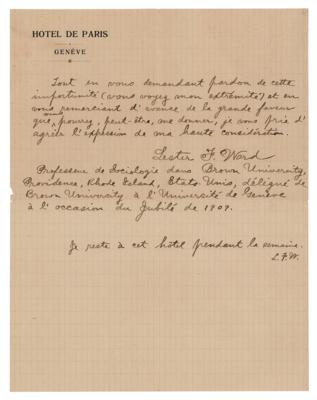 HOTEL DE PARIS
GENÈVE
Tout en vous demandant pardon de cette
importunité (vous voyez mon extrémité) et en
vous remerciant d'avance de la grande faveur
que vous pourrez, peut-être, me donner, je vous prie d'
agréer l'expression de ma haute considération.
Lester F. Ward
Professeur de Sociologie dans Brown University,
Providence, Rhode Island, Etats Unis, délégué de
Brown University à l'Université de Genève
à l'occasion du Jubilé de 1909.
Je reste à cet hôtel pendant la semaine.
L.F.W.